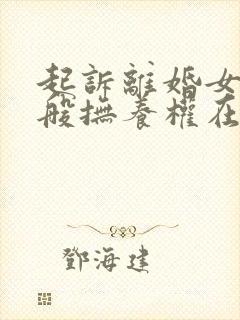 起訴離婚女
般撫養權在
鄧海建